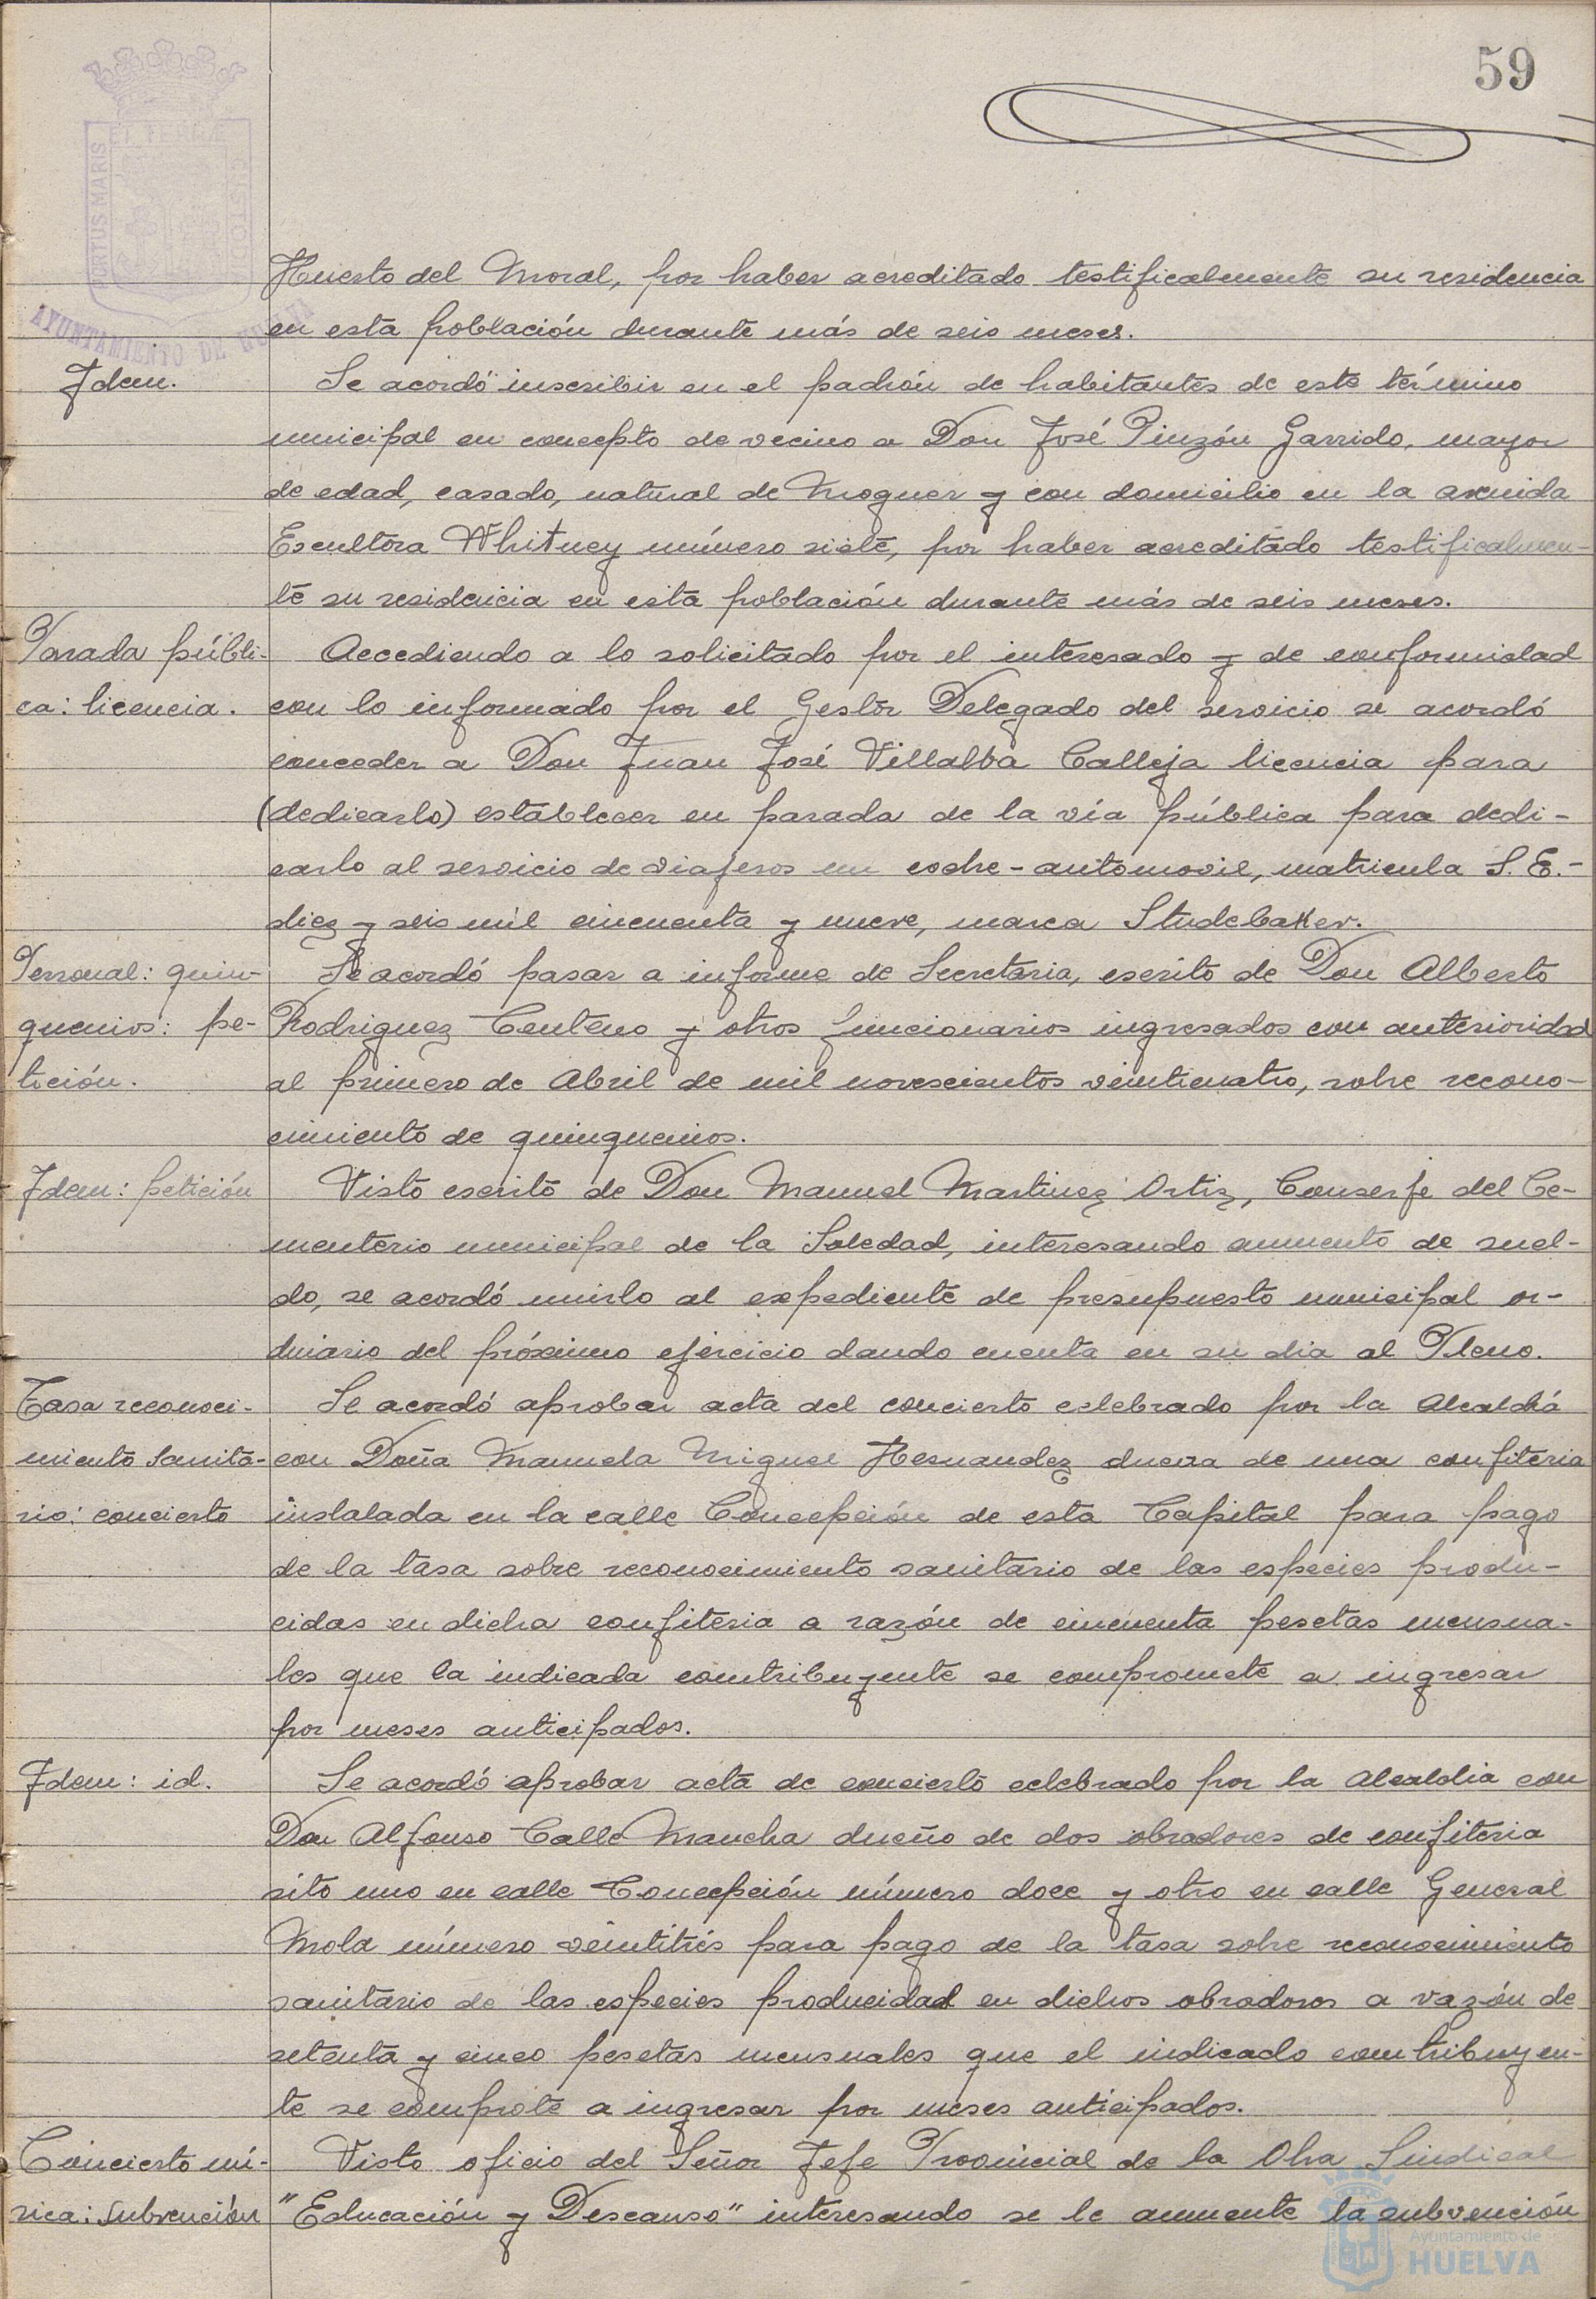 59
PORTUS MARIS ET TERRÆ CUSTODIA
AYUNTAMIENTO DE HUELVA
Huerto del Moral, por haber acreditado testificalmente su residencia
en esta población durante más de seis meses.
Idem.
Se acordó inscribir en el padrón de habitantes de este término
municipal en concepto de vecino a Don José Pinzón Garrido, mayor
de edad, casado, natural de Moguer y con domicilio en la avenida
Escultora Whitney número siete, por haber acreditado testificalmen-
te su residencia en esta población durante más de seis meses.
Parada públi-
ca: licencia.
Accediendo a lo solicitado por el interesado y de conformidad
con lo informado por el Gestor Delegado del servicio se acordó
conceder a Don Juan José Villalba Calleja licencia para
(dedicarlo) establecer en parada de la vía pública para dedi-
carlo al servicio de viajeros un coche-automovil, matricula S.E.-
diez y seis mil cincuenta y nueve, marca Studebaker.
Personal: quin-
quenios: pe-
tición.
Se acordó pasar a informe de Secretaria, escrito de Don Alberto
Rodriguez Centeno y otros funcionarios ingresados con anterioridad
al primero de Abril de mil novescientos veinticuatro, sobre recono-
cimiento de quinquenios.
Idem: petición
Visto escrito de Don Manuel Martinez Ortiz, Conserje del Ce-
menterio municipal de la Soledad, interesando aumento de suel-
do, se acordó unirlo al expediente de presupuesto municipal or-
dinario del próximo ejercicio dando cuenta en su dia al Pleno.
Tasa reconoci-
miento Sanita-
rio: concierto
Se acordó aprobar acta del concierto celebrado por la Alcaldía
con Doña Manuela Miguel Hernandez dueña de una confiteria
instalada en la calle Concepción de esta Capital para pago
de la tasa sobre reconocimiento sanitario de las especies produ-
cidas en dicha confiteria a razón de cincuenta pesetas mensua-
les que la indicada contribuyente se compromete a ingresar
por meses anticipados.
Idem: id.
Se acordó aprobar acta de concierto celebrado por la Alcaldia con
Don Alfonso Calle Mancha dueño de dos obradores de confiteria
sito uno en calle Concepción número doce y otro en calle General
Mola número veintitrés para pago de la tasa sobre reconocimiento
sanitario de las especies producidad en dichos obradoros a razón de
setenta y cinco pesetas mensuales que el indicado contribuyen-
te se comprote a ingresar por meses anticipados.
Concierto mú-
sica: Subvención
Visto oficio del Señor Jefe Provincial de la Obra Sindical
"Educación y Descanso" interesando se le aumente la subvención
Ayuntamiento de
HUELVA